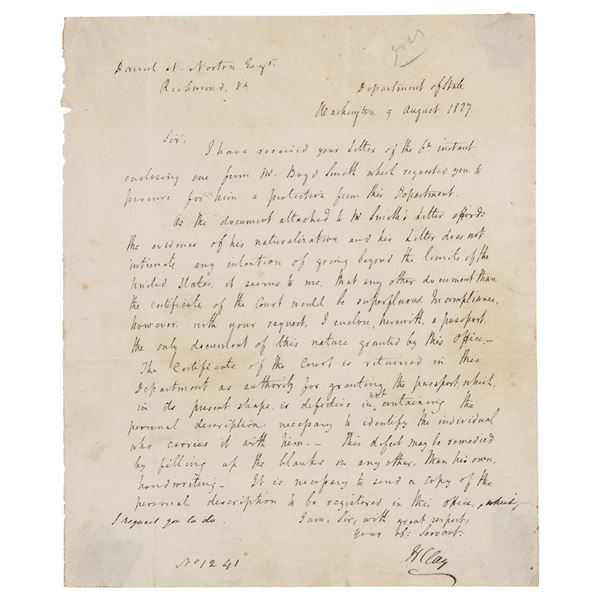 Daniel N. Norton Esqr.
Richmond, Va
Department of State
Washington 9 August 1827.
Sir,
I have received your Letter of the 6th. instant
enclosing one from Mr. Boyd Smith which requested you to
procure for him a protection from this Department.
As the document attached to Mr Smith's Letter affords
the evidence of his naturalization and his Letter does not
intimate any intention of going beyond the limits of the
United States, it seems to me, that any other document than
the certificate of the Court would be superfluous. In compliance,
however, with your request, I enclose, herewith, a passport,
the only document of this nature granted by this Office.—
The Certificate of the Court is retained in this
Department as authority for granting the passport which,
in its present shape is defective in not containing the
personal description necessary to identify the individual
who carries it with him.— This defect may be remedied
by filling up the blanks in any other, than his own,
handwriting.— It is necessary to send a copy of the
personal description to be registered in this Office, which,
I request you to do.
I am, Sir, with great respect,
your ob: Servant.
H Clay
No 1241